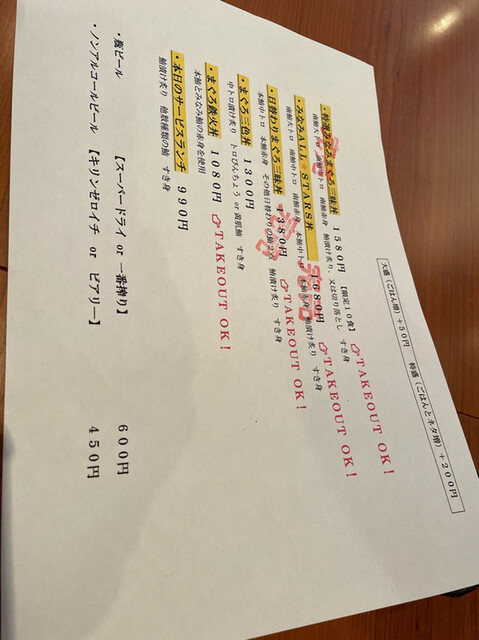 大盛（ごはん増）＋50円　特盛（ごはんとネタ増）＋200円
・特選みなみまぐろ三昧丼　1580円　【限定10食】　☞TAKEOUT OK！
南鮪大トロ　南鮪中トロ　南鮪赤身　鮪漬け炙り、又は切り落とし　すき身
・みなみALL☆STARS丼　1680円　☞TAKEOUT OK！
南鮪大トロ　南鮪中トロ　南鮪赤身　本鮪中トロ　本鮪赤身　鮪漬け炙り　すき身
・日替わりまぐろ三昧丼　1380円　☞TAKEOUT OK！
本鮪中トロ　本鮪赤身　その他日替わりの鮪2種　鮪漬け炙り　すき身
・まぐろ三色丼　1300円
中トロ漬け炙り　トロびんちょう or 黄肌鮪　すき身
・まぐろ鉄火丼　1080円　☞TAKEOUT OK！
本鮪とみなみ鮪の赤身を使用
・本日のサービスランチ　990円
鮪漬け炙り　他数種類の鮪　すき身
・瓶ビール　【スーパードライ or 一番搾り】　600円
・ノンアルコールビール　【キリンゼロイチ or ビアリー】　450円